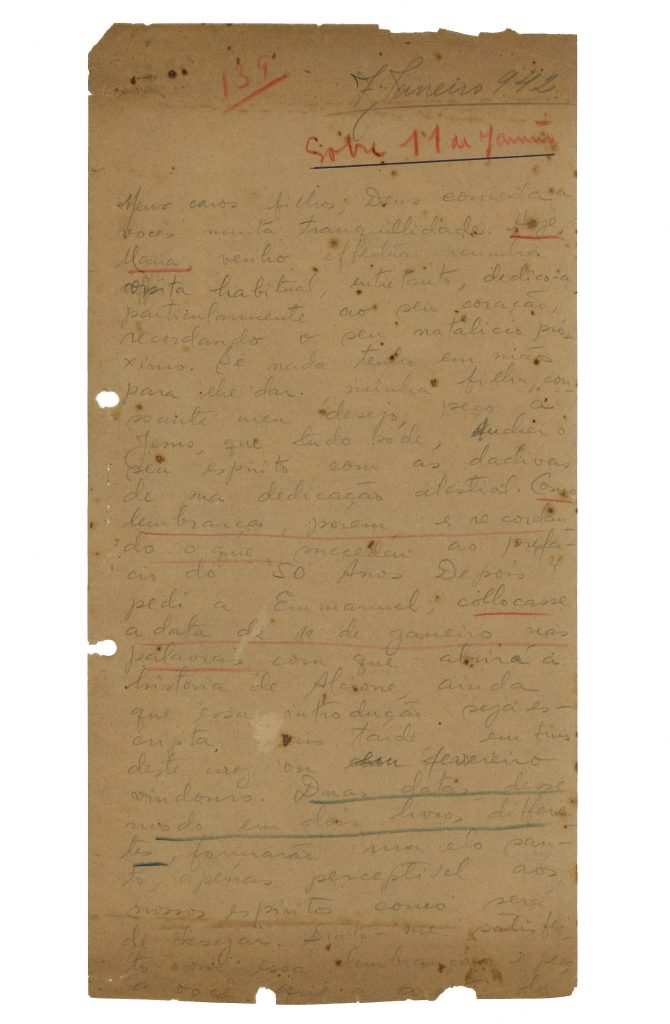 139
7 Janeiro 942
Sobre 11 de Janeiro
Meus caros filhos, Deus conceda a
vocês muita tranquillidade. Hoje,
Maria, venho effectuar minha
visita habitual, entretanto, dedico-a
particularmente ao seu coração,
recordando o seu natalicio pró-
ximo. Se nada tenho em mãos
para lhe dar, minha filha, con-
soante meu desejo, peço a
Jesus, que tudo póde, encher o
seu espirito com as dadivas
de sua dedicação celestial. Como
lembrança, porem e recordan-
do o que succedeu ao prefá-
cio do "50 Anos Depois"
pedi a Emmanuel, collocasse
a data de 11 de janeiro nas
palavras com que abrirá a
historia de Alcione, ainda
que essa introdução seja es-
cripta mais tarde em fins
deste mez ou em fevereiro
vindouro. Duas datas, desse
modo em dois livros differen-
tes, formarão um elo san-
to, apenas perceptivel aos
nossos espiritos como será
de desejar. Sinto-me satisfei-
to com essa lembrança e peço
a você que a